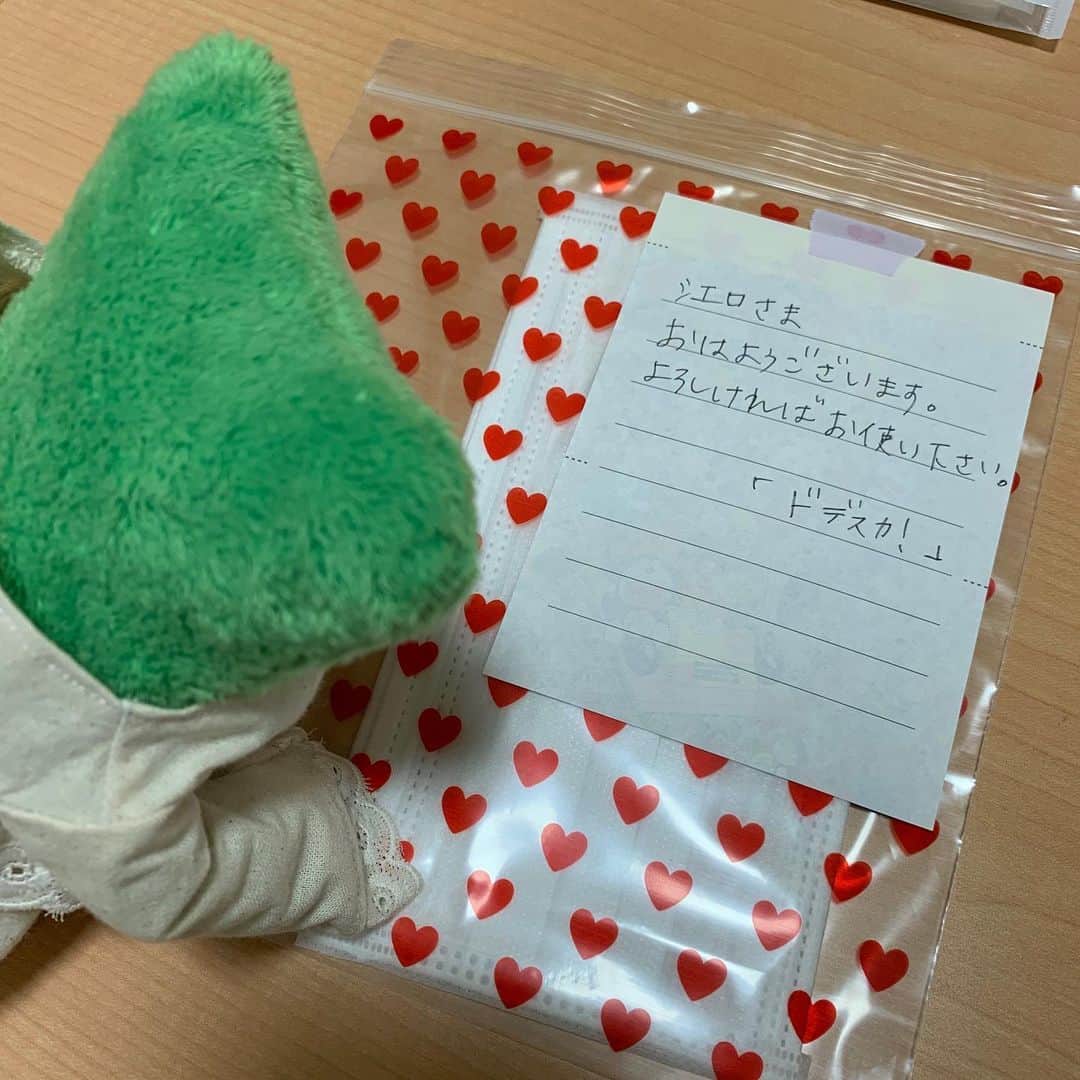 シエロさま
おはようございます。
よろしければお使い下さい。
「ドデスカ！」